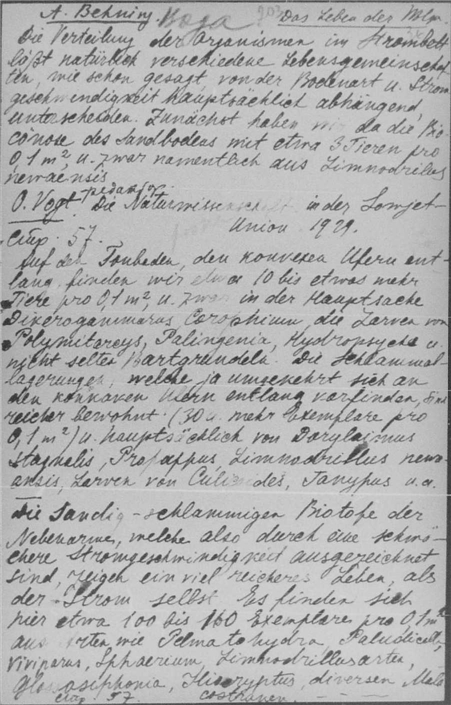 A. Behning Волга 203 Das Leben der Wolga.
Die Verteilung der Organismen im Strombett
läßt natürlich verschiedene Lebensgemeinschaf
ten, wie schon gesagt, von der Bodenart u. Strom
geschwindigkeit hauptsächlich abhängend,
unterscheiden. Zunächst haben wir da die Bio
cönose des Sandbodens mit etwa 3 Tieren pro
0,1 m², u. zwar namentlich aus Limnodrilus
newaensis
O. Vogt редактор Die Naturwissenschaft in der Sowjet-
Union 1929.
стр. 57.
Auf den Tonboden, den konvexen Ufern ent-
lang, finden wir etwa 10 bis etwas mehr
Tiere pro 0,1 m², u. zwar in der Hauptsache
Dikerogammarus Corophium, die Larven von
Polymitarcys, Palingenia, Hydropsyche u.
nicht selten Bartgrundeln. Die Schlammab-
lagerungen, welche ja umgekehrt sich an
den konkaven Ufern entlang vorfinden, sind
reicher bewohnt (30 u. mehr Exemplare pro
0,1 m²) u. hauptsächlich von Dorylaimus
stagnalis, Propappus, Limnodrillus newa-
ensis, Larven von Culicoides, Tanypus u.a.
Die Sandig-schlammigen Biotope der
Nebenarme, welche also durch eine schwä-
chere Stromgeschwindigkeit ausgezeichnet
sind, zeigen ein viel reicheres Leben, als
der Strom selbst. Es finden sich
hier etwa 100 bis 160 Exemplare pro 0,1 m²
aus Arten wie Pelmatohydra, Paludicella,
Viviparus, Sphaerium, Limnodrillusarten,
Glossosiphonia, Iliocryptus, diversen Mala
стр. 57. costraken.